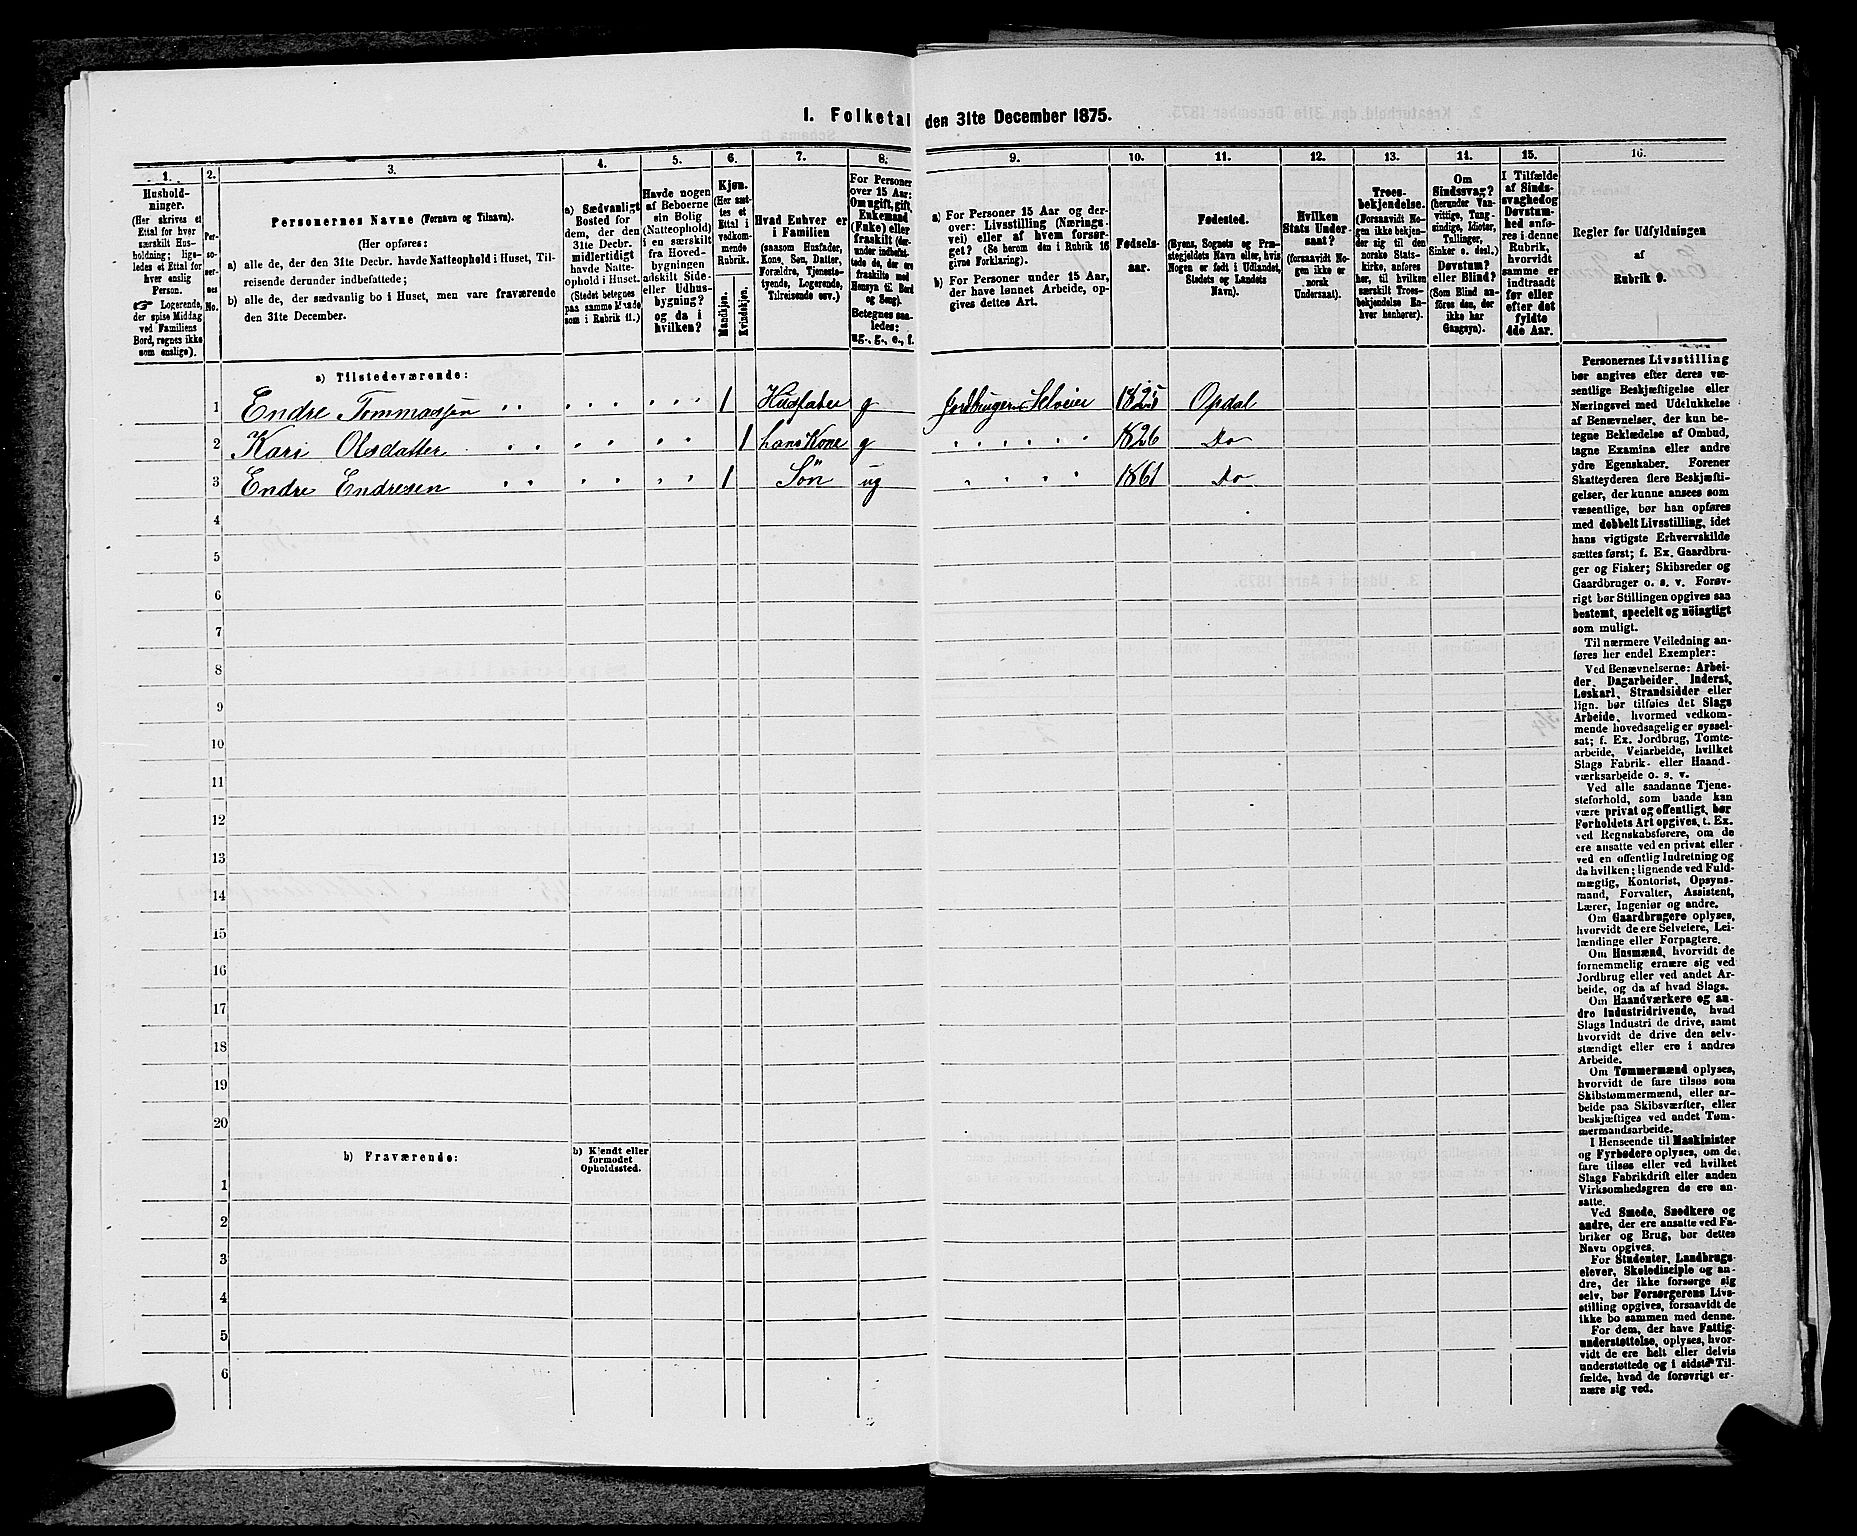 I. Folketal den 31te December 1875.
1.
2.
3.
4.
5.
6.
7.
8.
9.
10.
11.
12.
13.
14.
15.
16.
Hushold-
ninger.
(Her skrives et
Ettal for hver
særskilt Hus-
holdning; lige-
ledes et Ettal for
hver enslig
Person.
☞ Logerende,
der spise Middag
ved Familiens
Bord, regnes ikke
som enslige).
Per-
so-
ner-
nes
No.
Personernes Navne (Fornavn og Tilnavn).
(Her opføres:
a) alle de, der den 31te Decbr. havde Natteophold i Huset, Til-
reisende derunder indbefattede;
b) alle de, der sædvanlig bo i Huset, men vare fraværende
den 31te December.
a) Sædvanligt
Bosted for
dem, der den
31te Decbr.
midlertidigt
havde Natte-
ophold i Huset.
(Stedet betegnes
paa samme Maade
som i Rubrik 11.)
Havde nogen
af Beboerne
sin Bolig
(Natteophold)
i en særskilt
fra Hoved-
bygningen
adskilt Side-
eller Udhus-
bygning?
og da i
hvilken?
Kjøn.
(Her sæt-
tes et
Ettal i
vedkom-
mende
Rubrik.
Mandkjøn.
Kvindekjøn.
Hvad Enhver er
i Familien
(saasom Husfader,
Kone, Søn, Datter,
Forældre, Tjeneste-
tyende, Logerende,
Tilreisende osv.)
For Personer
over 15 Aar:
Om ugift, gift,
Enkemand
(Enke) eller
fraskilt (der-
under indbefat-
tede de, der ere
fraskilte med
Hensyn til Bord
og Seng).
Betegnes saa-
ledes:
ug., g., e., f.
a) For Personer 15 Aar og der-
over: Livsstilling (Nærings-
vei) eller af hvem forsør-
get? (Se herom den i Rubrik 16
givne Forklaring).
b) For Personer under 15 Aar,
der have lønnet Arbeide, op-
gives dettes Art.
Fødsels-
aar.
Fødested.
(Byens, Sognets og Præ-
stegjeldets Navn eller, hvis
Nogen er født i Udlandet,
Stedets og Landets
Navn).
Hvilken
Stats Under-
saat?
(forsaavidt No-
gen ikke er
norsk
Undersaat).
Troes-
bekjendelse.
(Forsaavidt No-
gen ikke bekjen-
der sig til den
norske Stats-
kirke, anføres
her, til hvilken
særskilt Troes-
bekjendelse En-
hver hører).
Om
Sindssvag?
(herunder Van-
vittige, Tung-
sindige, Idioter,
Tullinger,
Sinker o. desl.).
Døvstum?
eller Blind?
(Som Blind an-
føres den, der
ikke har
Gangsyn).
I Tilfælde
af Sinds-
svaghed og
Døvstum-
hed anfø-
res i denne
Rubrik,
hvorvidt
samme er
indtraadt
før eller
efter det
fyldte
4de Aar.
Regler for Udfyldningen
af
Rubrik 9.
a) Tilstedeværende:
1 Endre Tommassen 1 Husfader g Jordbruger Selveier 1825 Opdal
2 Kari Olsdatter 1 hans Kone g 1826 Do
3 Endre Endresen 1 Søn ug 1861 Do
4
5
6
7
8
9
10
11
12
13
14
15
16
17
18
19
20
b) Fraværende:
b) Kjendt eller
formodet
Opholdssted.
1
2
3
4
5
6
Personernes Livsstilling
bør angives efter deres væ-
sentlige Beskjæftigelse eller
Næringsvei med Udelukkelse
af Benævnelser, der kun be-
tegne Beklædelse af Ombud,
tagne Examina eller andre
ydre Egenskaber. Forener
Skatteyderen flere Beskjæfti-
gelser, der kunne ansees som
væsentlige, bør han opføres
med dobbelt Livsstilling, idet
hans vigtigste Erhvervskilde
sættes først; f. Ex. Gaardbru-
ger og Fisker; Skibsreder og
Gaardbruger o. s. v. Forøv-
rigt bør Stillingen opgives saa
bestemt, specielt og nöiagtigt
som muligt.
Til nærmere Veiledning an-
føres her endel Exempler:
Ved Benævnelserne: Arbei-
der, Dagarbeider, Inderst,
Løskarl, Strandsidder eller
lign. bør tilføies det Slags
Arbeide, hvormed vedkom-
mende hovedsagelig er syssel-
sat; f. Ex. Jordbrug, Tomte-
arbeide, Veiarbeide, hvilket
Slags Fabrik- eller Haand-
værksarbeide o. s. v.
Ved alle saadanne Tjene-
steforhold, som baade kan
være privat og offentligt, bør
Forholdets Art opgives, t. Ex.
ved Regnskabsførere, om de
ere ansatte ved en privat eller
ved en offentlig Indretning og
da hvilken; lignende ved Fuld-
mægtig, Kontorist, Opsyns-
mand, Forvalter, Assistent,
Lærer, Ingeniør og andre.
Om Gaardbrugere oplyses,
hvorvidt de ere Selveiere, Lei-
lændinge eller Forpagtere.
Om Husmænd, hvorvidt de
fornemmelig ernære sig ved
Jordbrug eller ved andet Ar-
beide, og da af hvad Slags.
Om Haandværkere og an-
dre Industridrivende, hvad
Slags Industri de drive, samt
hvorvidt de drive den selv-
stændigt eller ere i andres
Arbeide.
Om Tømmermænd oplyses,
hvorvidt de fare tilsøs som
Skibstømmermænd, eller ar-
beide paa Skibsværfter, eller
beskjæftiges ved andet Tøm-
mermandsarbeide.
I Henseende til Maskinister
og Fyrbødere oplyses, om de
fare tilsøs eller ved hvilket
Slags Fabrikdrift eller anden
Virksomhedsgren de ere an-
satte.
Ved Smede, Snedkere og
andre, der ere ansatte ved Fa-
briker og Brug, bør dettes
Navn opgives.
For Studenter, Landbrugs-
elever, Skoledisciple og an-
dre, der ikke forsørge sig
selv, bør Forsørgerens Livs-
stilling opgives, forsaavidt de
ikke bo sammen med denne.
For dem, der have Fattig-
understøttelse, oplyses, hvor-
vidt de ere helt eller delvis
understøttede og i sidste Til-
fælde, hvad de forøvrigt er-
nære sig ved.